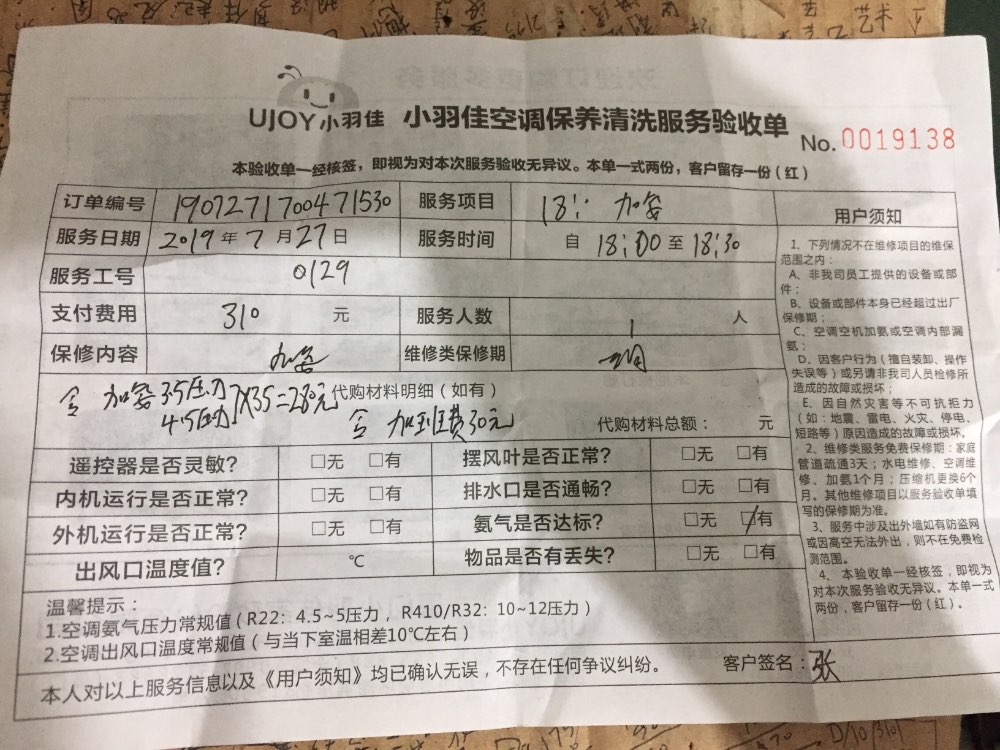 UJOY小羽佳 小羽佳空调保养清洗服务验收单
No. 0019138
本验收单一经核签，即视为对本次服务验收无异议。本单一式两份，客户留存一份（红）
订单编号 1907271700471530 服务项目 18:: 加氨
服务日期 2019年7月27日 服务时间 自18:00至18:30
服务工号 0129
支付费用 310 元 服务人数 1 人
保修内容 加氨 维修类保修期
含 加氨 3.5压力 代购材料明细（如有）
4.5压力 7X35=280元 含 加班费30元 代购材料总额： 元
遥控器是否灵敏? □无 □有 摆风叶是否正常? □无 □有
内机运行是否正常? □无 □有 排水口是否通畅? □无 □有
外机运行是否正常? □无 □有 氨气是否达标? □无 □有
出风口温度值? ℃ 物品是否有丢失? □无 □有
温馨提示：
1.空调氨气压力常规值（R22：4.5~5压力，R410/R32：10~12压力）
2.空调出风口温度常规值（与当下室温相差10℃左右）
本人对以上服务信息以及《用户须知》均已确认无误，不存在任何争议纠纷。
客户签名：张
用户须知
1、下列情况不在维修项目的维保
范围之内：
A、非我司员工提供的设备或部
件；
B、设备或部件本身已经超过出厂
保修期；
C、空调空机加氨或空调内部漏
氨；
D、因客户行为（擅自装卸、操作
失误等）或另请非我司人员检修所
造成的故障或损坏；
E、因自然灾害等不可抗拒力
（如：地震、雷电、火灾、停电、
短路等）原因造成的故障或损坏。
2、维修类服务免费保修期：家庭
管道疏通3天；水电维修、空调维
修、加氨1个月；压缩机更换6个
月。其他维修项目以服务验收单填
写的保修期为准。
3、服务中涉及出外墙如有防盗网
或因高空无法外出，则不在免费检
测范围。
4、本验收单一经核签，即视为
对本次服务验收无异议。本单一式
两份，客户留存一份（红）。